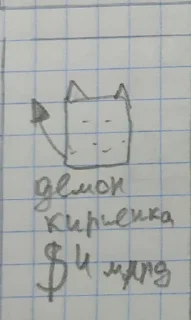 демон
кириенка
$4 млрд